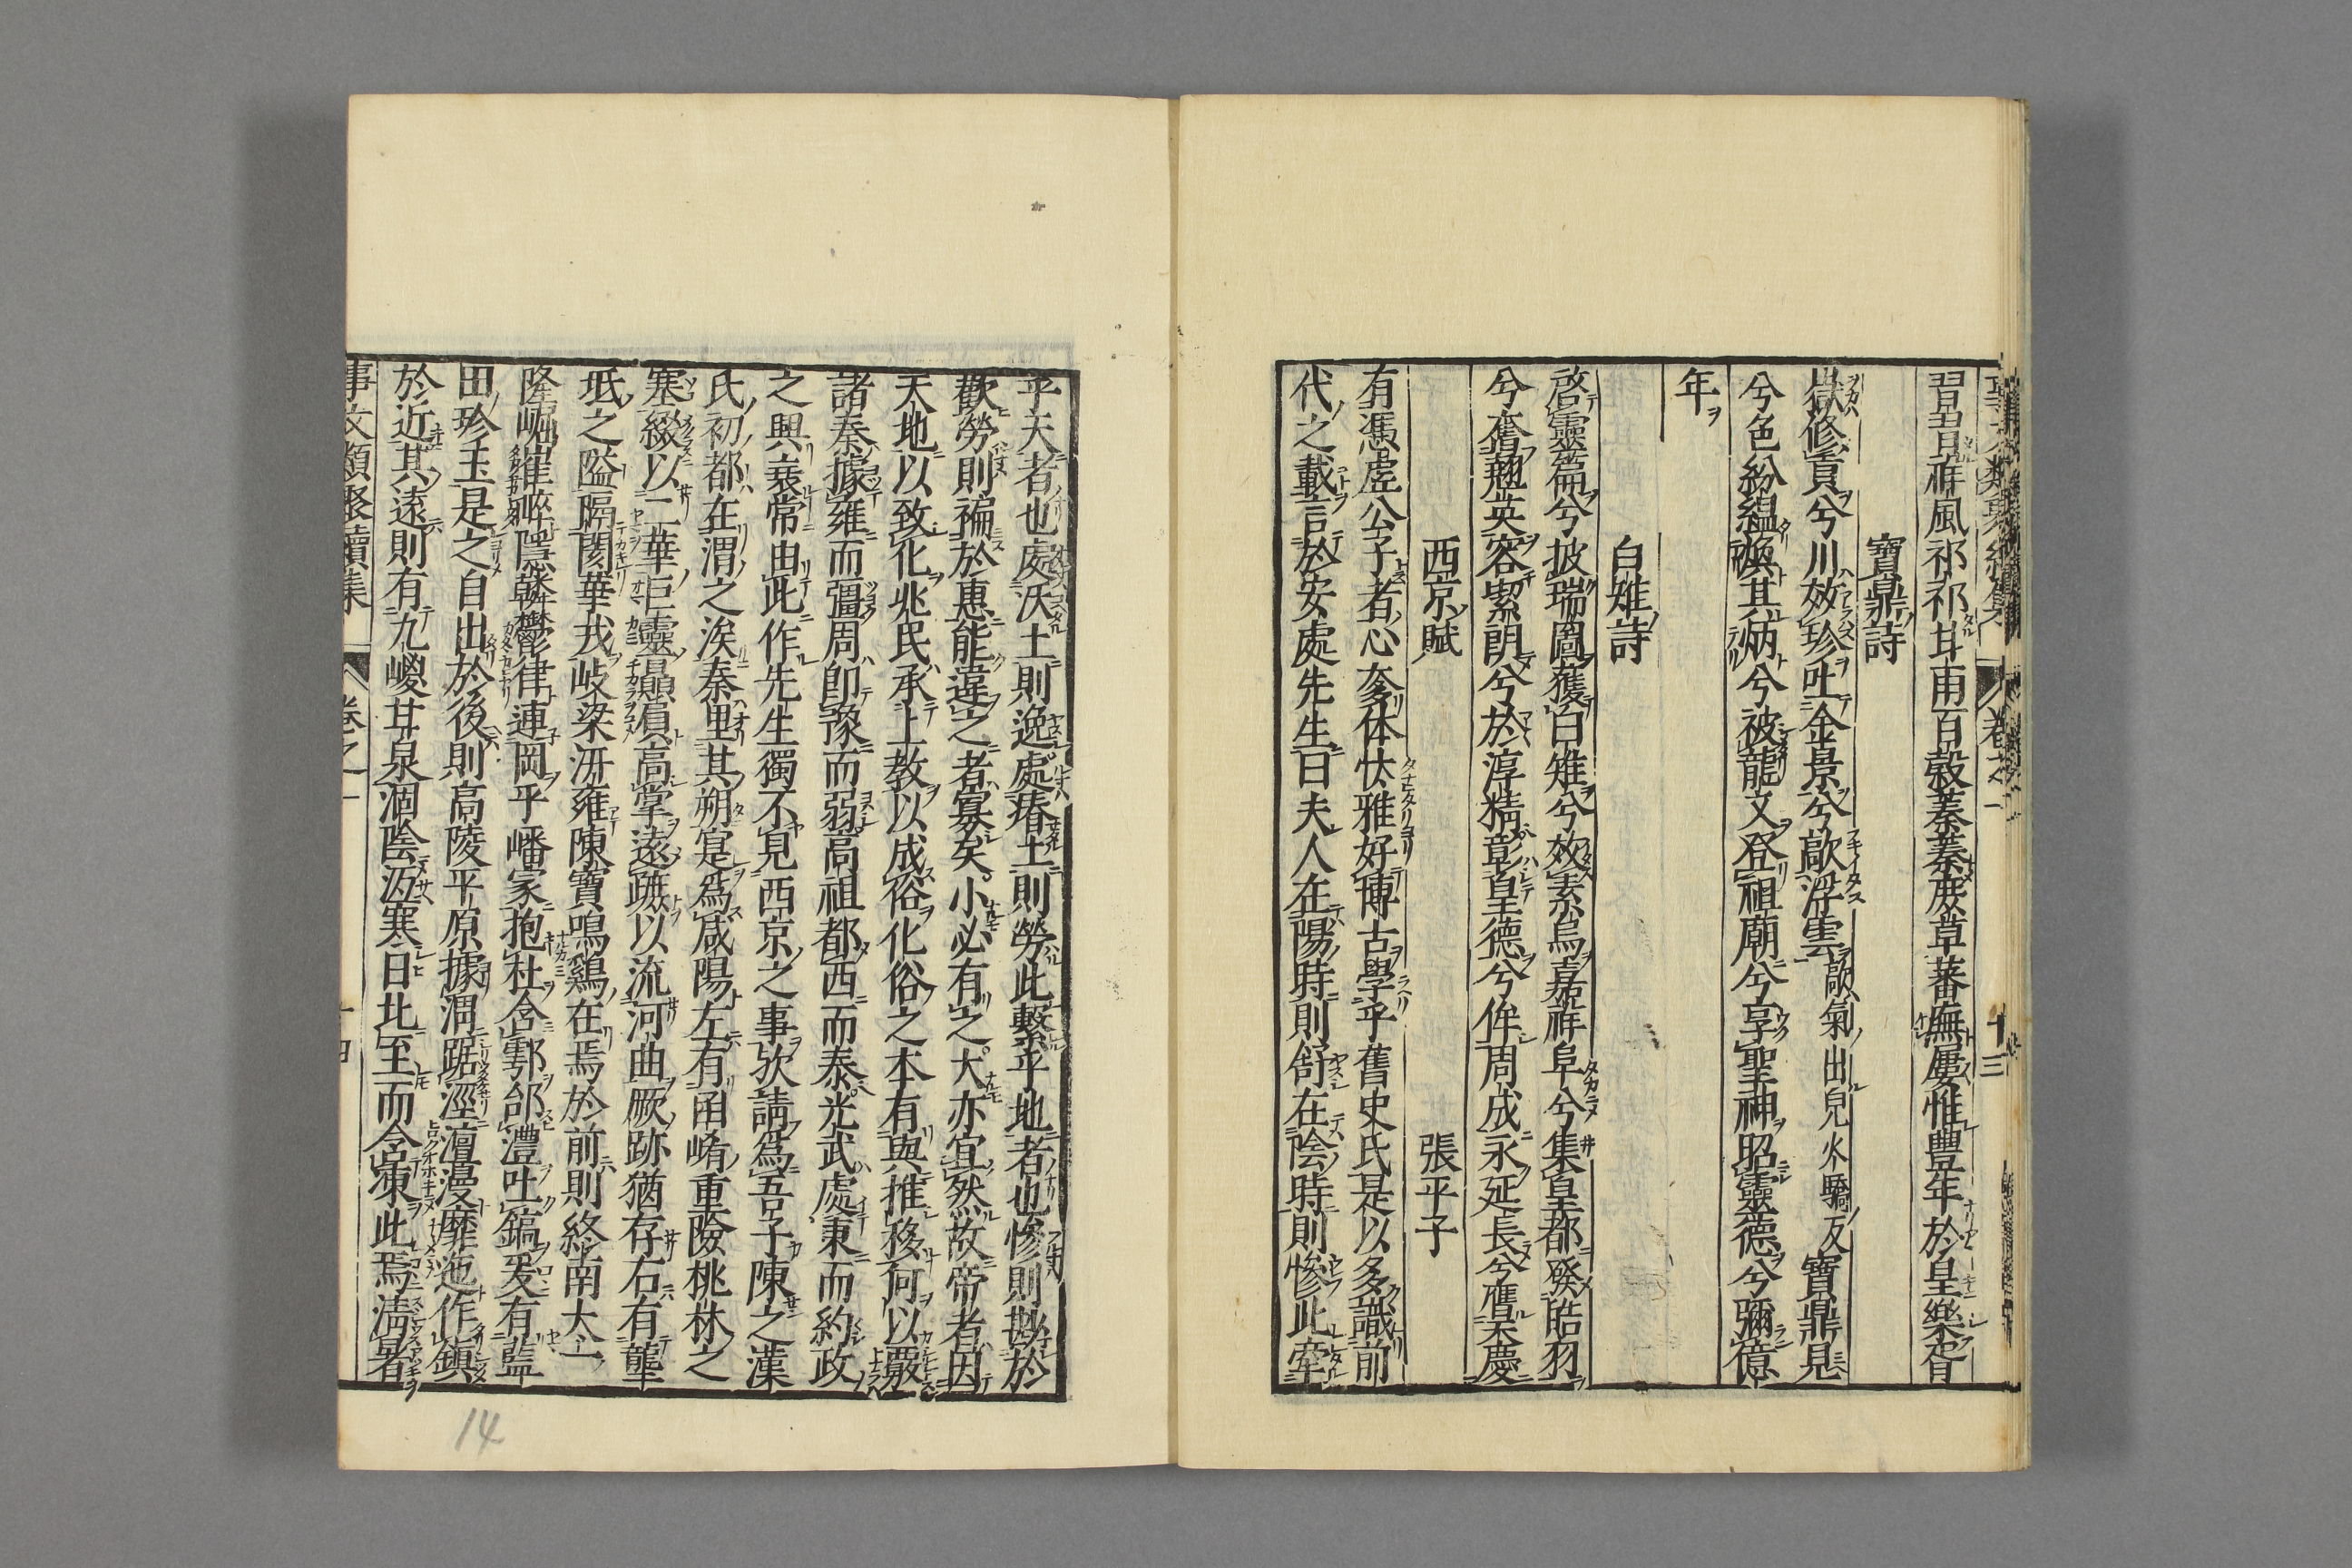 事文類聚續集 卷之一 十三
習習祥風祁祁甘雨百穀蓁蓁庶草蕃廡屢惟豐年於皇樂胥
寶鼎詩
嶽修貢兮川效珍吐金景兮歊浮雲歊氣出皃火驕反寶鼎見
兮色紛縕煥其炳兮被龍文登祖廟兮享聖神昭靈德兮彌億
年
白雉詩
啓靈篇兮披瑞圖獲白雉兮效素烏嘉祥阜兮集皇都發皓羽
兮奮翹英容絜朗兮於淳精彰皇德兮侔周成永延長兮膺天慶
西京賦 張平子
有憑虛公子者心奓体忲雅好博古學乎舊史氏是以多識前
代之載言於安處先生曰夫人在陽時則舒在陰時則慘此牽
乎天者也處沃土則逸處瘠土則勞此繫乎地者也慘則尠於
歡勞則褊於惠能違之者寡矣小必有之大亦宜然故帝者因
天地以致化兆民承上教以成俗化俗之本有與推移何以覈
諸秦據雍而彊周即豫而弱高祖都西而泰光武處東而約政
之興衰常由此作先生獨不見西京之事欤請爲吾子陳之漢
氏初都在渭之涘秦里其朔寔爲咸陽左有崤崤重險桃林之
塞綴以二華巨靈贔屓高掌遠蹠以流河曲厥跡猶存右有隴
坻之隘隔閡華戎岐梁汧雍陳寶鳴鷄在焉於前則終南太一
隆崛崔崪隱轔鬱律連岡乎嶓冢抱杜含鄠欱灃吐鎬爰有藍
田珍玉是之自出於後則高陵平原據渭踞涇澶漫靡迤作鎮
於近其遠則有九嵏甘泉涸陰沍寒日北至而含凍此焉淸暑
事文類聚續集 卷之一 十四
14